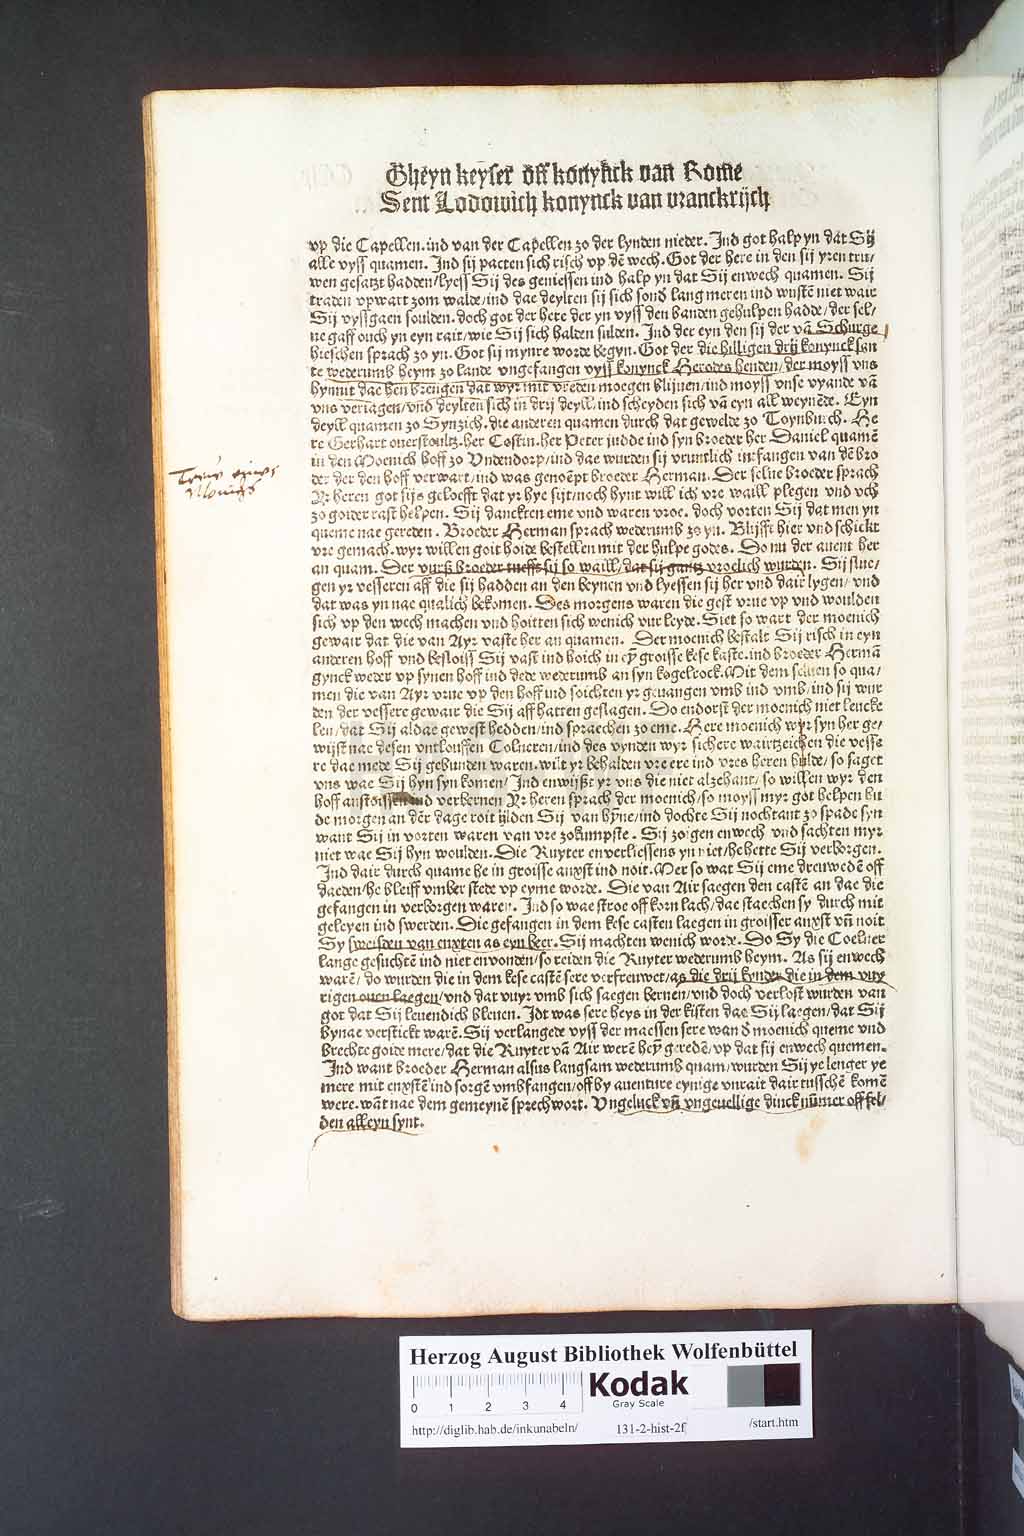 Gheyn keyser off konynck van Rome
Sent Lodowich konynck van vranckrijch
vp die Capellen. ind van der Capellen zo der lynden nieder. Ind got halp yn dat Sij
alle vyss quamen. Ind sij pacten sich risch vp dē wech. Got der here in den sij yren tru/
wen gesatzt hadden/lyess Sij des geniessen ind halp yn dat Sij enwech quamen. Sij
traden vpwart zom walde/ind dae deylten sij sich sond lang meren ind wustē niet wair
Sij vyssgaen soulden. doch got der here der yn vyss den banden gehulpen hadde/der sel/
ue gaff ouch yn eyn rait/wie Sij sich halden sulden. Ind der eyn den sij der vā Schurge
hieschen sprach zo yn. Got sij mynre worde begyn. Got der die hilligen drij konynck san
te wederumb heym zo lande vngefangen vyss konynck Herodes henden/der moyss vns
hynnit dae hen brengen dat wyr mit vreden moegen blijuen/ind moyss vnse vyande vā
vns veriagen/vnd deylten sich in drij deyll/ind scheyden sich vā eyn all weynēde. Eyn
deyll quamen zo Synzich. die anderen quamen durch dat gewelde zo Toynburch. He
re Gerhart ouerstoultz. her Costin. her Peter iudde ind syn broeder her Daniel quamē
in den Moenich hoff zo Vndendorp/ind dae wurden sij vruntlich intfangen van dē bro
der der den hoff verwart/ind was genoēpt broeder Herman. Der selue broeder sprach
Yr heren got sijs geloefft dat yr hye sijt/noch hynt will ich vre waill plegen vnd vch
zo goider rast helpen. Sij danckten eme vnd waren vroe. doch vorten Sij dat men yn
queme nae gereden. Broeder Herman sprach wederumb zo yn. Blijfft hier vnd schickt
vre gemach. wyr willen goit hoide bestellen mit der hulpe godes. Do nu der auent her
an quam. Der broeder sij so waill/dat sij gantz vroelich wurden. Sij slue/
gen yr vesseren aff die sij hadden an den beynen vnd lyessen sij her vnd dair lygen/vnd
dat was yn nae qualich bekomen. Des morgens waren die gest vrue vp vnd woulden
sich vp den wech machen vnd hoitten sich wenich vur leyde. Siet so wart der moenich
gewair dat die van Ayr vaste her an quamen. Der moenich bestalt Sij risch in eyn
anderen hoff vnd besloiss Sij vast ind hoich in eȳ groisse kese kaste. ind broeder Hermā
gynck weder vp synen hoff ind dede wederumb an syn kogelrock. Mit dem seluen so qua/
men die van Ayr vrue vp den hoff ind soichten yr geuangen vmb ind vmb/ind sij wur
den der vessere gewair die Sij aff hatten geslagen. Do endorst der moenich niet leucke
len/dat Sij aldae gewest hedden/ind spraechen zo eme. Here moenich wyr syn her ge/
wijst nae desen vntlouffen Colneren/ind des vynden wyr sichere wairtzeichen die vesse
re dae mede Sij gebunden waren. wilt yr behalden vre ere ind vres heren hulde/so saget
vns wae Sij hyn syn komen/Ind enwijszt yr vns die niet alzehant/so willen wyr den
hoff anstoissen ind verbernen Yr heren sprach der moenich/so moyss myr got helpen hu
de morgen an der dage roit ijlden Sij van hyne/ind dochte Sij nochtant zo spade syn
want Sij in vorten waren van vre zokumpste. Sij zoigen enwech vnd sachten myr
niet wae Sij hyn woulden. Die Ruyter enverliessens yn niet/he hette Sij verborgen.
Ind dair durch quame he in groisse anxst ind noit. Mer so wat Sij eme dreuwedē off
daeden/he bleiff vmber stede vp eyme worde. Die van Air saegen den castē an dae die
gefangen in verborgen waren. Ind so wae stroe off korn lach/dae staechen sy durch mit
geleyen ind swerden. Die gefangen in dem kese casten laegen in groisser anxst vn̄ noit
Sy sweisden van enxten as eyn beer. Sij machten wenich word. Do Sy die Coelner
lange gesuchtē ind niet envonden/so reiden die Ruyter wederumb heym. As sij enwech
warē/do wurden die in dem kese castē sere verfreuwet/as die drij kynder die in dem vuy
rigen ouen laegen/vnd dat vuyr vmb sich saegen bernen/vnd doch verlost wurden van
got dat Sij leuendich bleuen. Idt was sere heys in der kisten dae Sij laegen/dat Sij
bynae verstickt warē. Sij verlangede vyss der maessen sere wan d̄ moenich queme vnd
brechte goide mere/dat die Ruyter vā Air werē heȳ geredē/vp dat sij enwech quemen.
Ind want broeder Herman alsus langsam wederumb quam/wurden Sij ye lenger ye
mere mit enxstē ind sorgē vmbfangen/off by auenture eynige vnrait dair tusschē komē
were. wāt nae dem gemeynē sprechwort. Vngeluck vn̄ vngeuellige dinck nūmer off sel/
den alleyn synt.
Herzog August Bibliothek Wolfenbüttel
0 1 2 3 4
Kodak
Gray Scale
http://diglib.hab.de/inkunabeln/ 131-2-hist-2f /start.htm